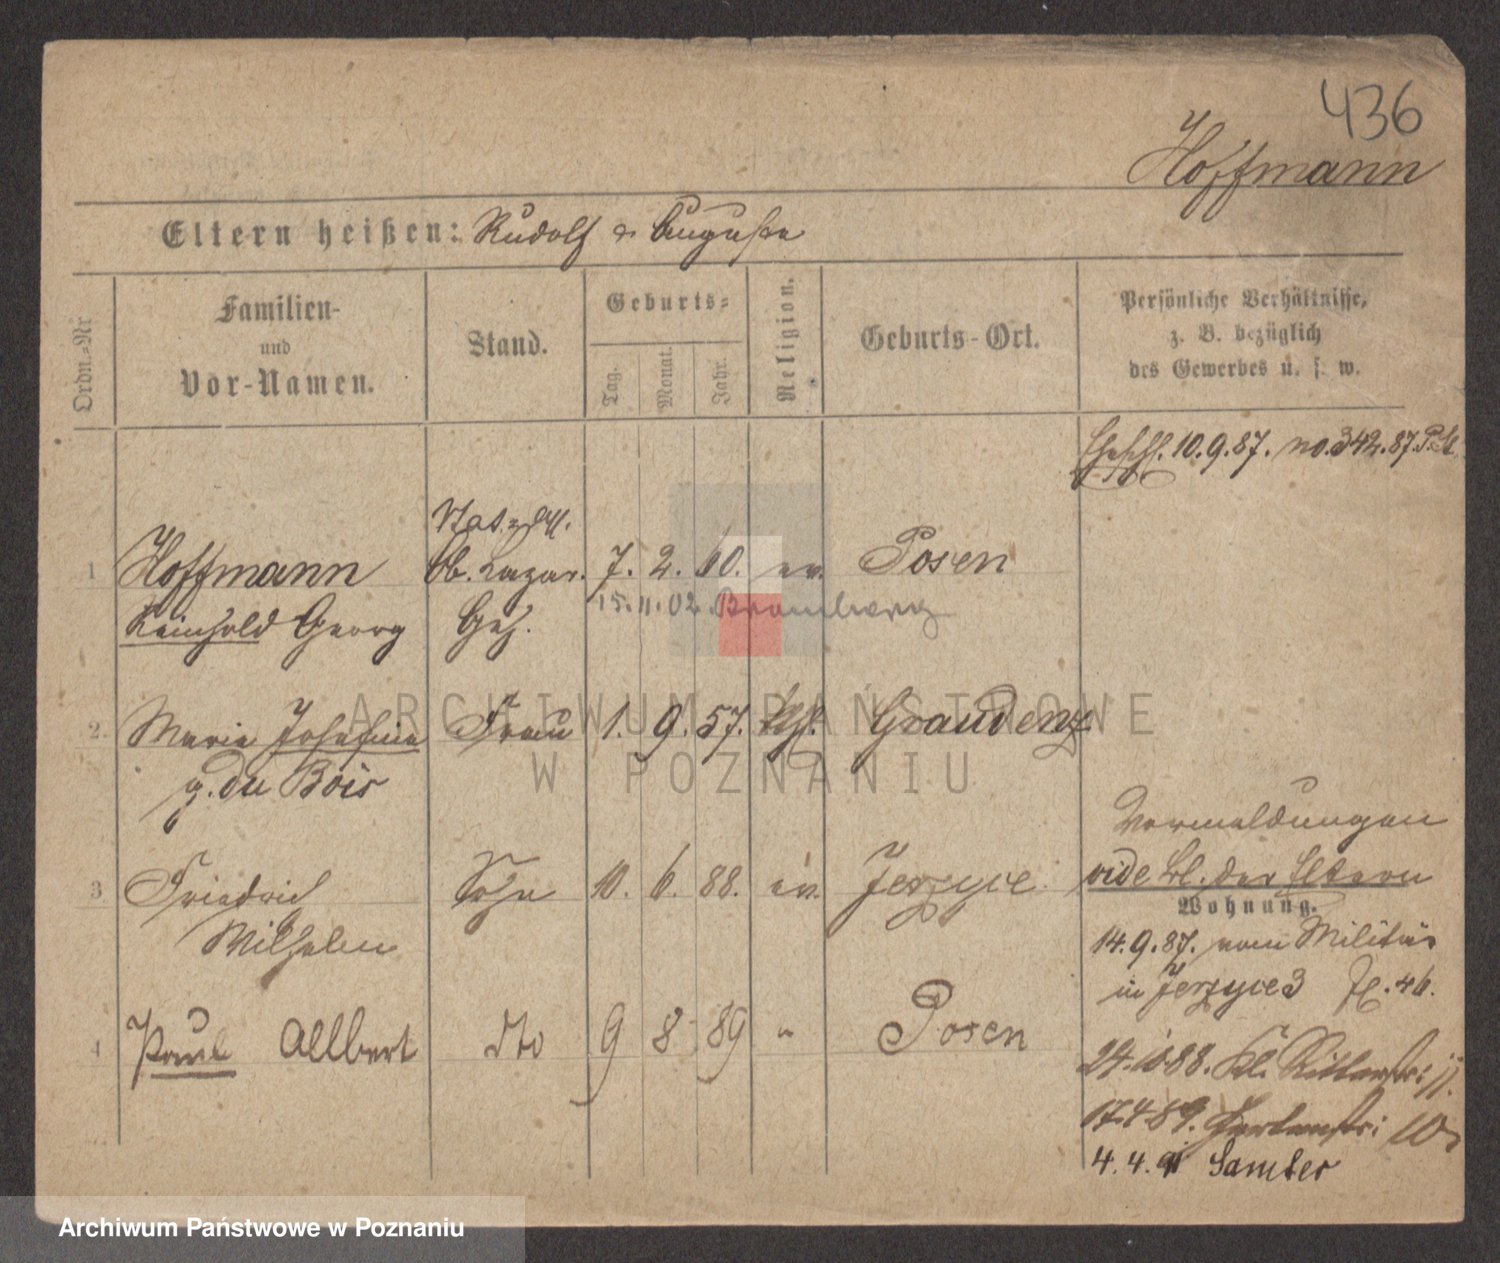 436
Hoffmann
Eltern heißen: Rudolf u Auguste
Ordn.-Nr
Familien-
und
Vor-Namen.
Stand.
Geburts-
Tag.
Monat.
Jahr.
Religion.
Geburts-Ort.
Persönliche Verhältnisse,
z. B. bezüglich
des Gewerbes u. s. w.
Eheschl. 10.9.87. no. 342.87. P.St.
1 Hoffmann Ob. Lazar. 7. 2. 60. ev. Posen
Reinhold Georg Geh. 15.11.02 Bromberg
2. Marie Josefine Frau 1. 9. 57. kth. Graudenz
g. du Bois
Vermeldungen
3 Friedrich Sohn 10. 6. 88. ev. Jerzyce vide Bl. der Eltern
Wilhelm
Wohnung.
14.9.87. vom Militär
in Jerzyce 3
4 Paul Allbert dto 9 8 89 " Posen
24.10.88. Kl. Ritterstr: 11.
17.4.89. Gartenstr: 10
4.4.91 Samter
ARCHIWUM PAŃSTWOWE
W POZNANIU
Archiwum Państwowe w Poznaniu